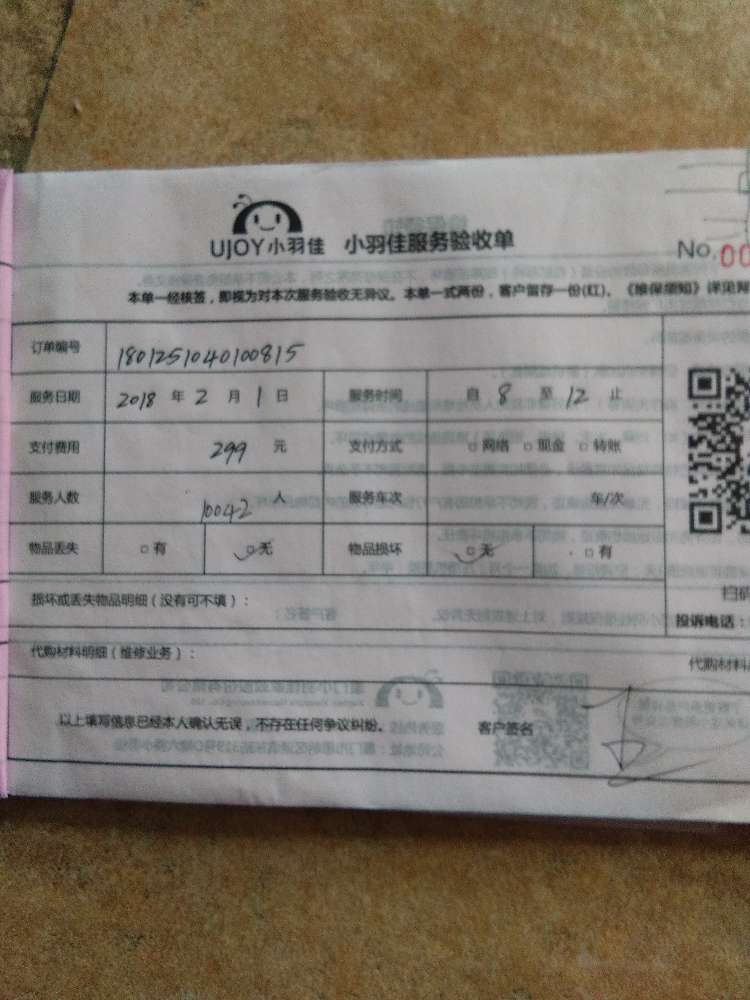 UJOY小羽佳 小羽佳服务验收单
No.00
本单一经核签，即视为对本次服务验收无异议。本单一式两份，客户留存一份(红)。《维保须知》详见背
订单编号 1801251040100815
服务日期 2018 年 2 月 1 日 服务时间 自 8 至 12 止
支付费用 299 元 支付方式 □ 网络 □ 现金 □ 转账
服务人数 10042 人 服务车次 车/次
物品丢失 □ 有 □ 无 物品损坏 □ 无 □ 有
损坏或丢失物品明细（没有可不填）： 扫码
投诉电话：
代购材料明细（维修业务）： 代购材料
以上填写信息已经本人确认无误，不存在任何争议纠纷。 客户签名